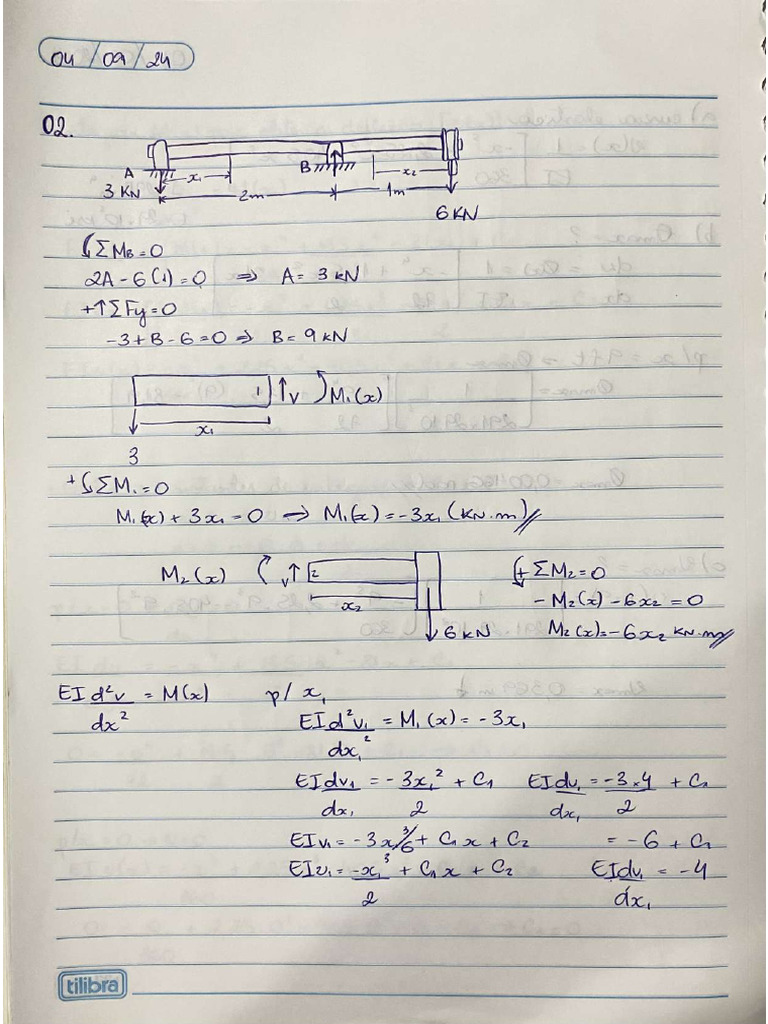 04/09/24
02.
A x₁ B x₂
3 KN 2m 1m
6 KN
ΣM_B=0
2A-6(1)=0 ⇒ A= 3 KN
+↑ΣFy=0
-3+B-6=0 ⇒ B= 9 KN
1 ↑V M₁(x)
x₁
3
+ ΣM₁=0
M₁(x)+3x₁=0 ⇒ M₁(x)=-3x₁ (KN.m)//
M₂(x) V↑ 2 + ΣM₂=0
x₂ -M₂(x)-6x₂=0
↓6 KN M₂(x)=-6x₂ KN.m//
EI d²v/dx² = M(x) p/ x₁
EI d²v₁/dx₁² = M₁(x) = -3x₁
EI dv₁/dx₁ = -3x₁²/2 + C₁ EI dv₁/dx₁ = -3×4/2 + C₁
EIv₁= -3x³/6 + C₁x + C₂ = -6 + C₁
EIv₁= -x₁³/2 + C₁x + C₂ EI dv₁/dx₁ = -4
tilibra